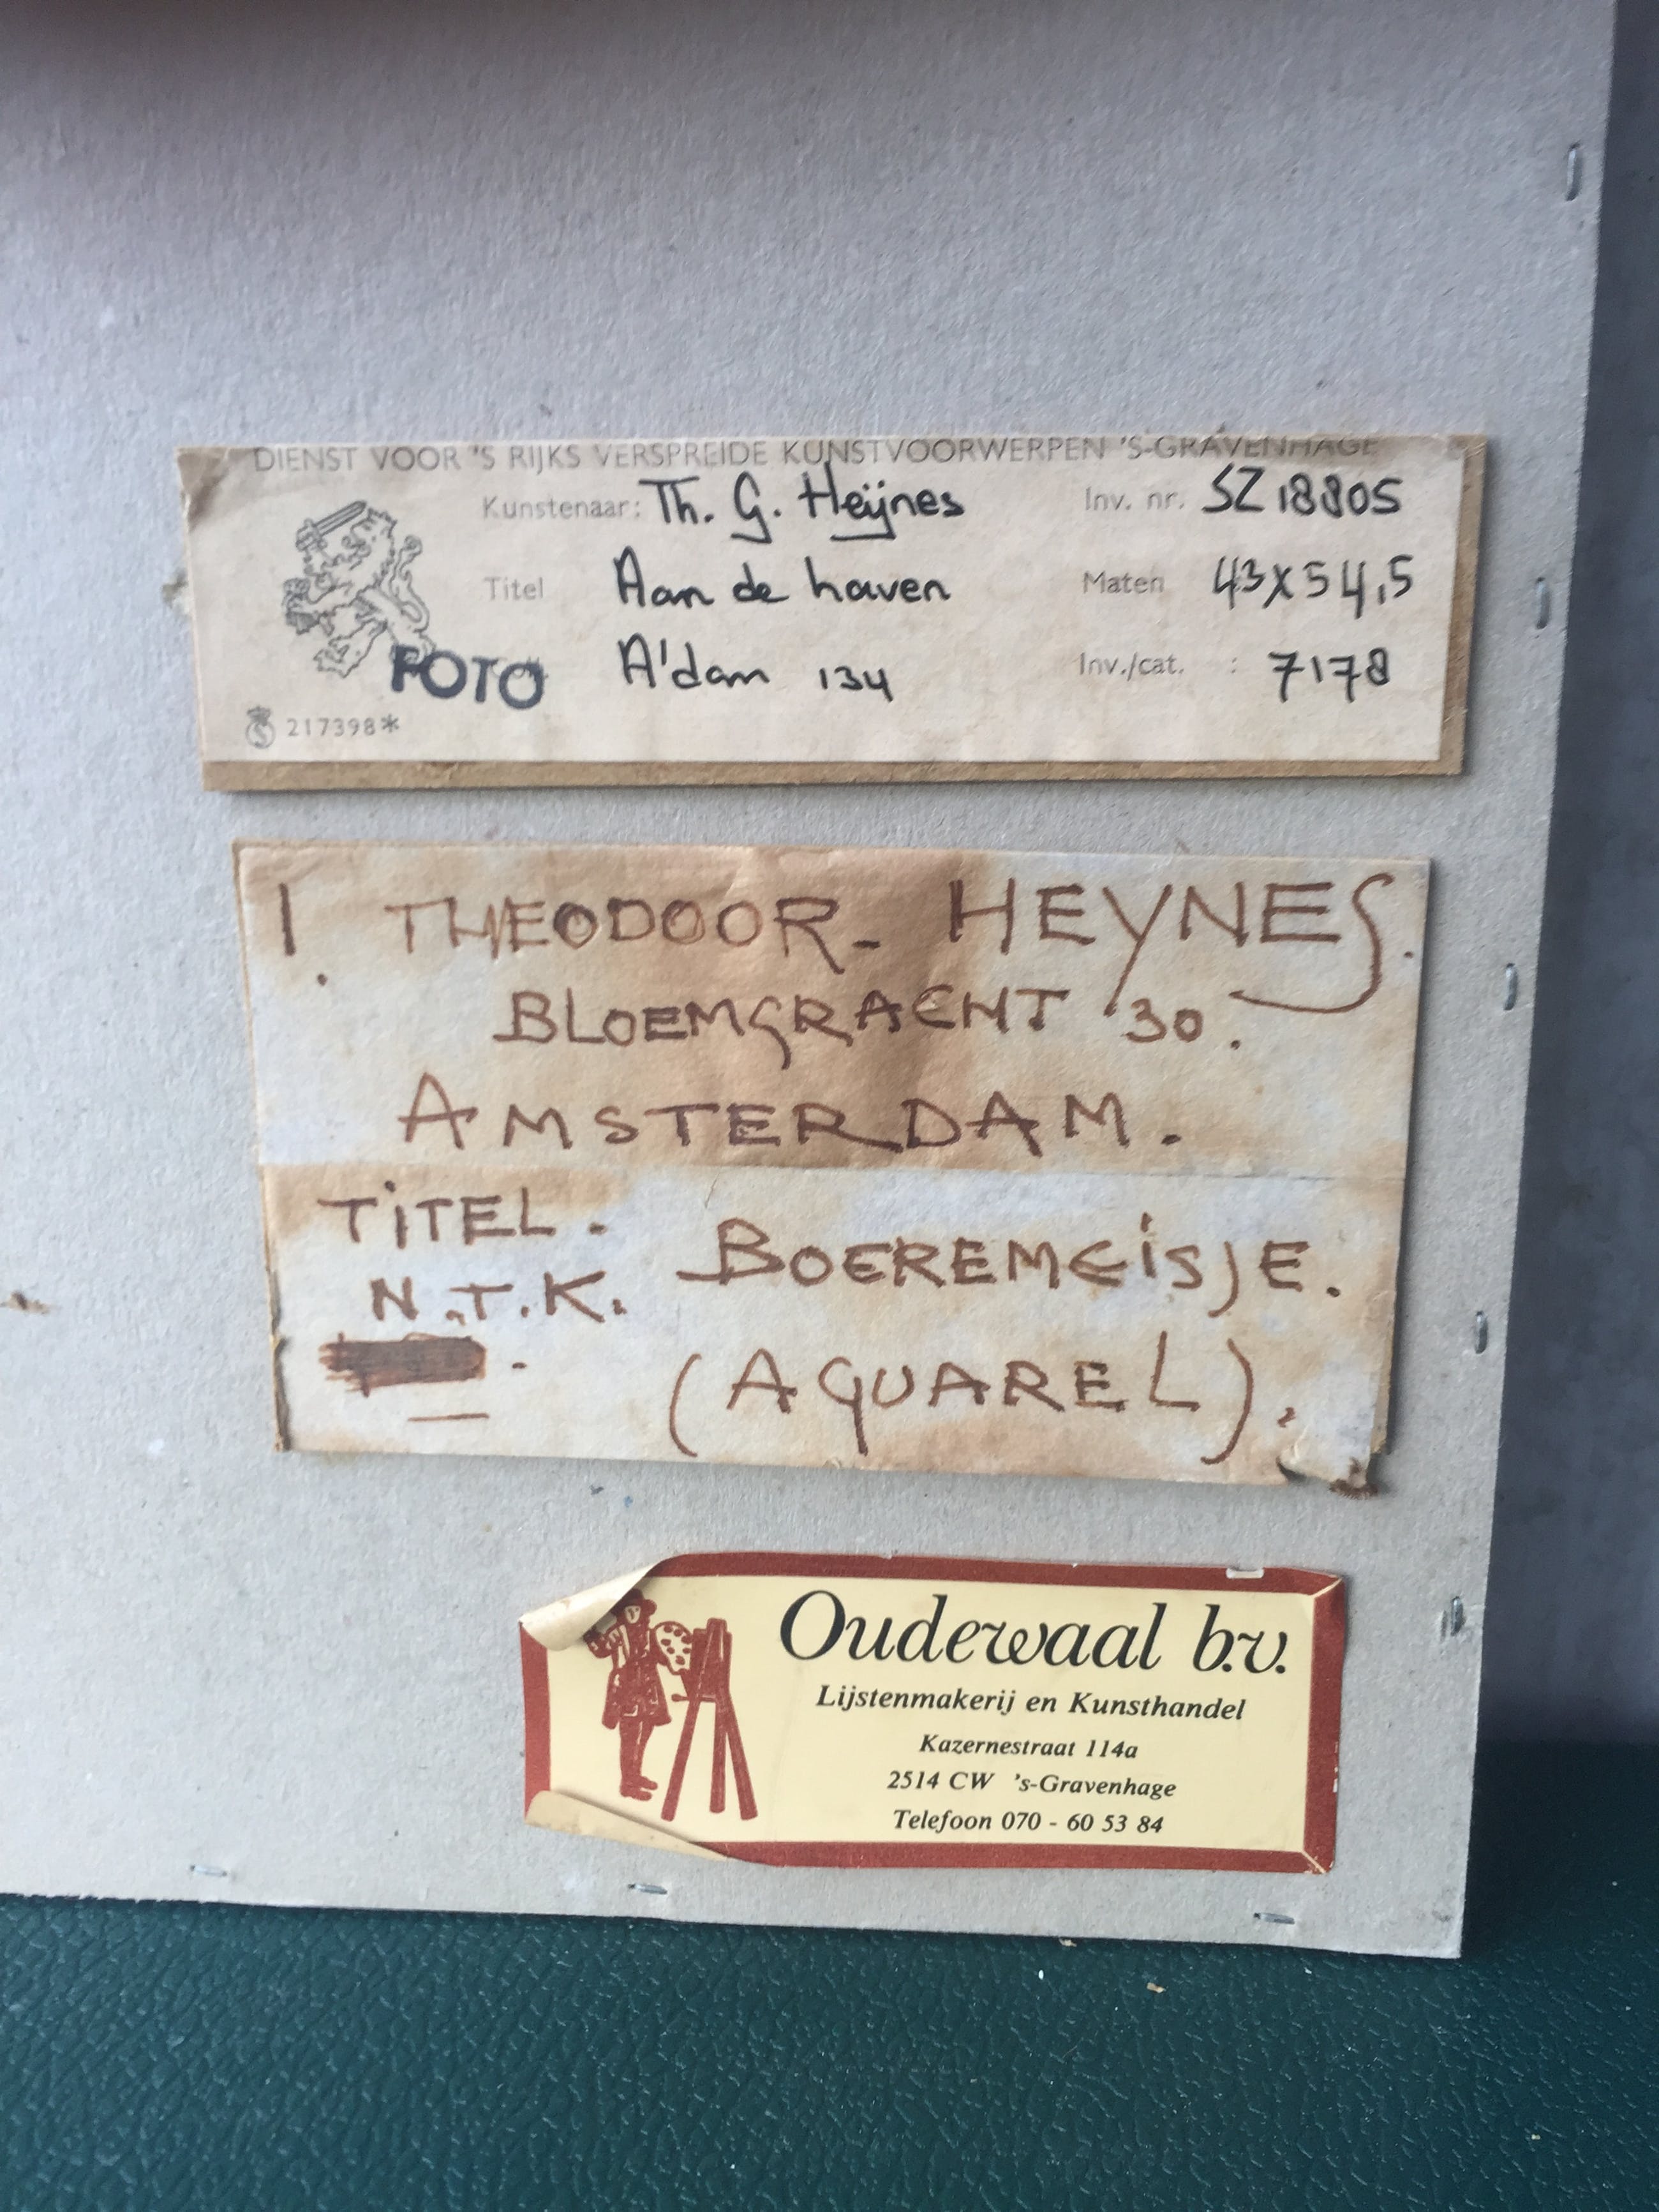 DIENST VOOR 'S RIJKS VERSPREIDE KUNSTVOORWERPEN 'S-GRAVENHAGE
Kunstenaar: Th. G. Heÿnes Inv. nr. SZ 18805
Titel Aan de haven Maten 43x54,5
FOTO A'dam 134 Inv./cat. : 7178
217398*
1. THEODOOR - HEYNES.
BLOEMGRACHT 30.
AMSTERDAM.
TiTEL. BOEREMEiSJE.
N.T.K.
(AQUAREL).
Oudewaal b.v.
Lijstenmakerij en Kunsthandel
Kazernestraat 114a
2514 CW 's-Gravenhage
Telefoon 070 - 60 53 84